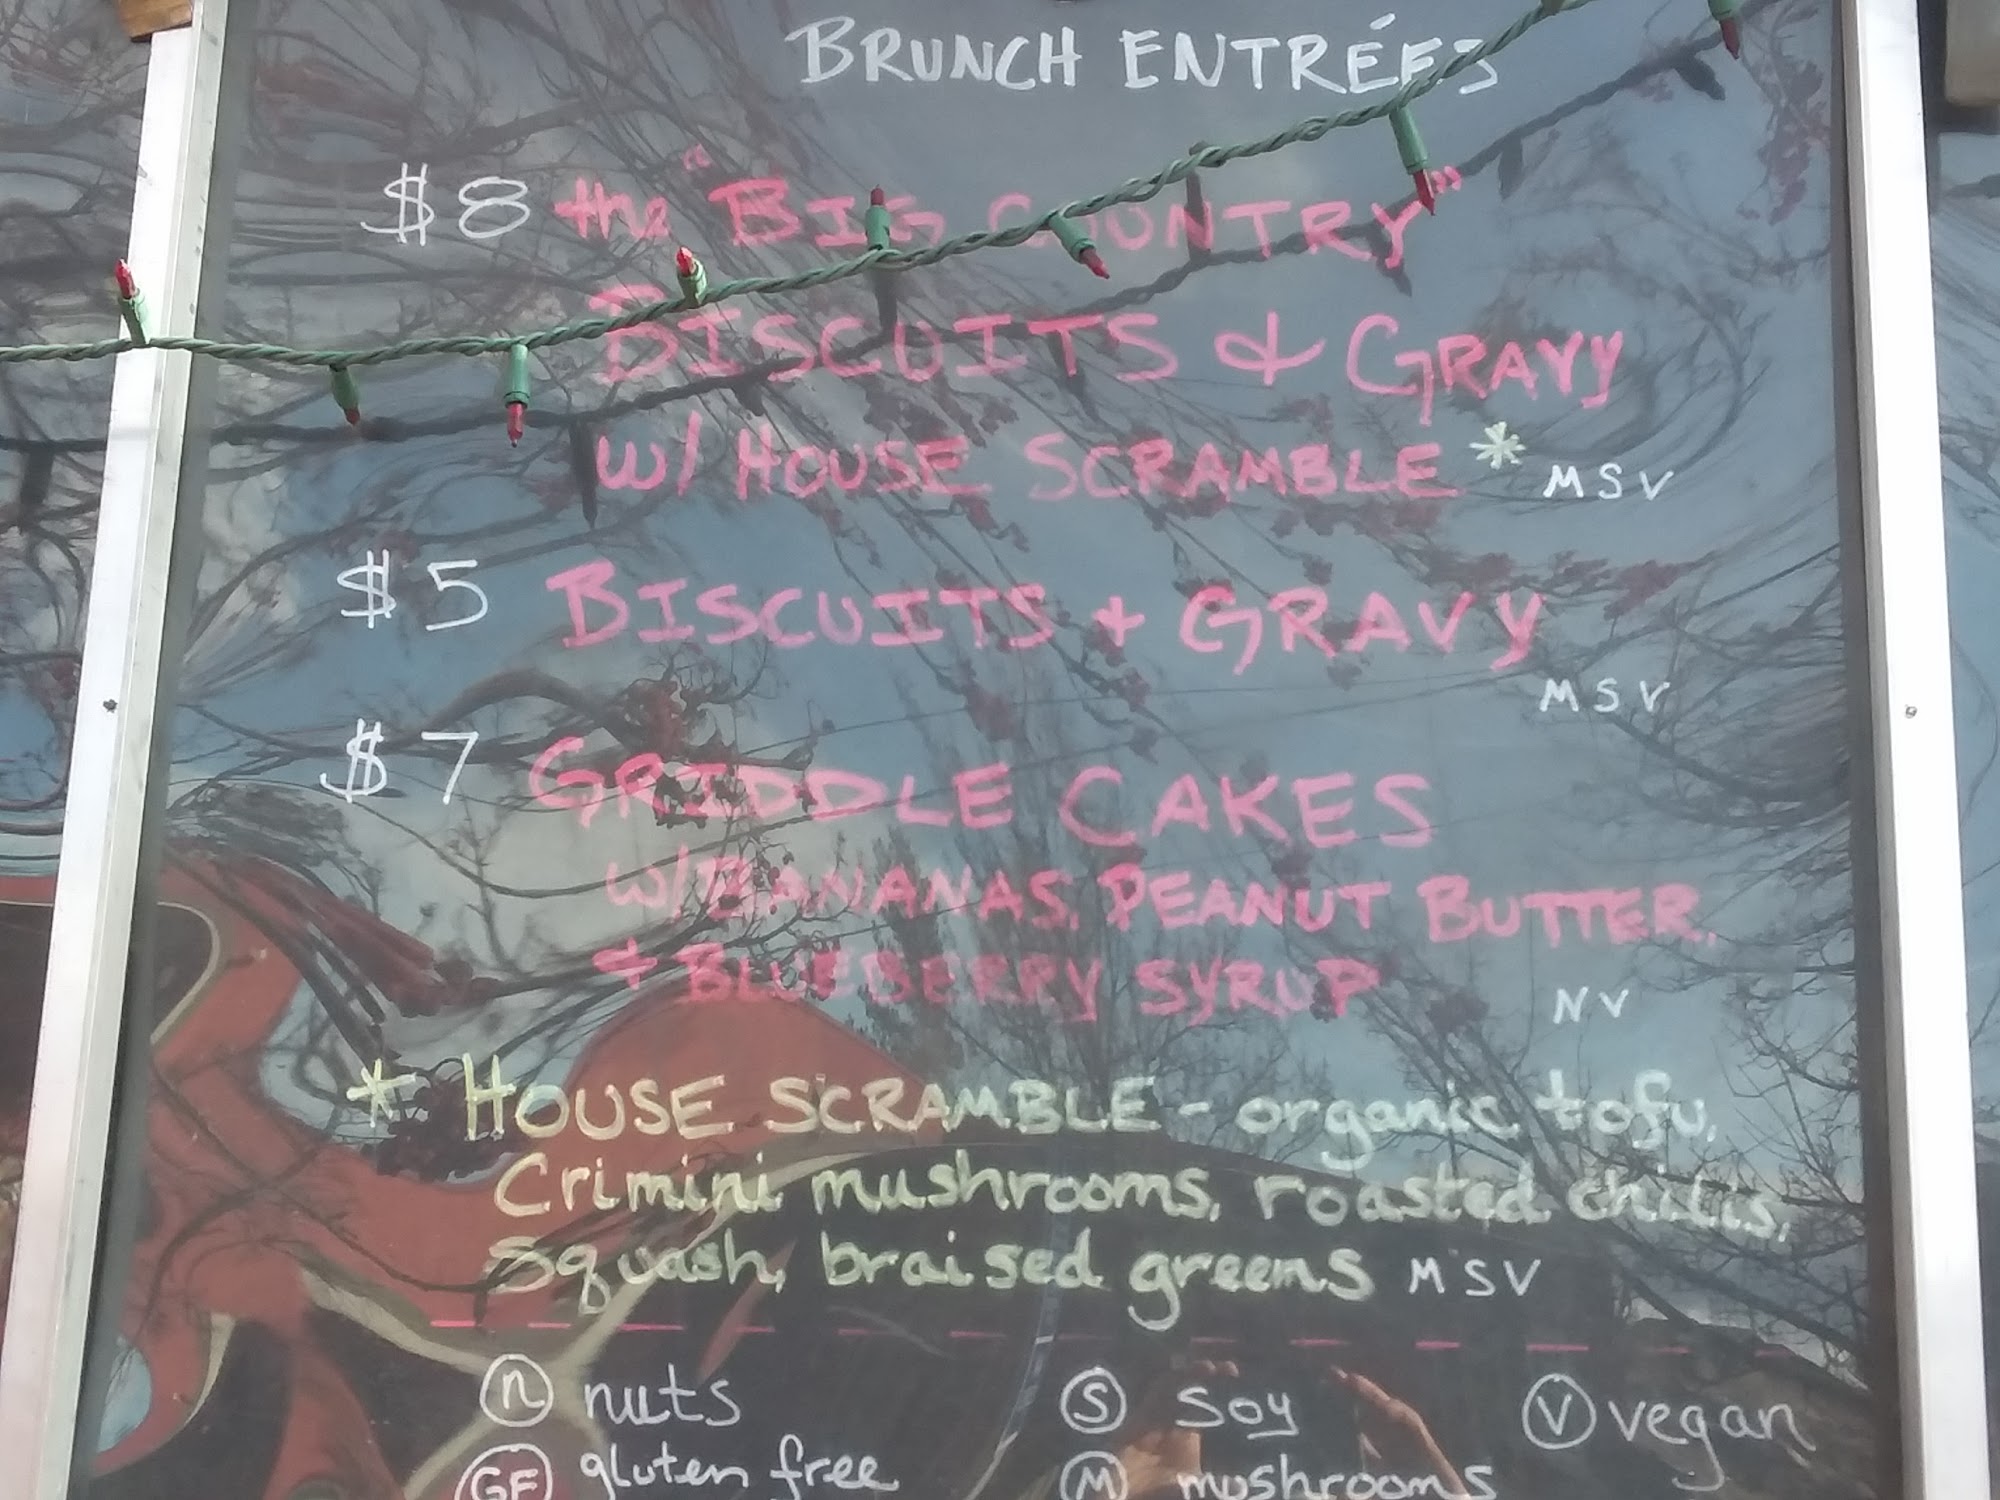 BRUNCH ENTRÉES
$8 the "BIG COUNTRY"
BISCUITS & GRAVY
w/ HOUSE SCRAMBLE * MSV
$5 BISCUITS + GRAVY
MSV
$7 GRIDDLE CAKES
w/ BANANAS, PEANUT BUTTER,
+ BLUEBERRY SYRUP NV
* HOUSE SCRAMBLE - organic tofu,
Crimini mushrooms, roasted chilis,
squash, braised greens MSV
n nuts S soy V vegan
GF gluten free M mushrooms